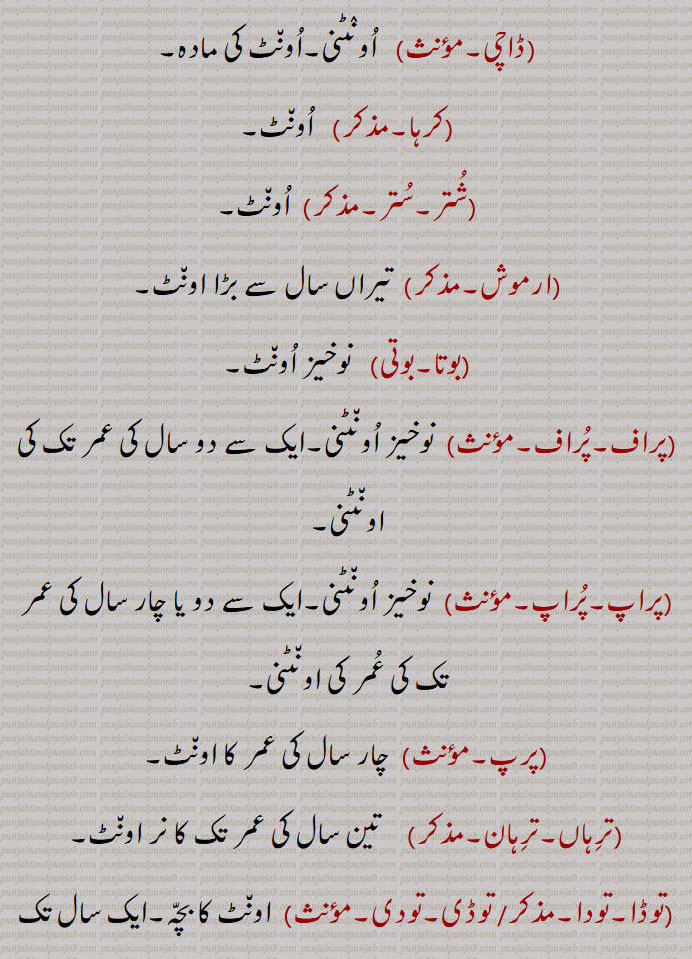 (ڈاچی۔مؤنث) اُونٹنی۔اُونٹ کی مادہ۔
(کرہا۔مذکر) اُونٹ۔
(شُتر۔سُتر۔مذکر) اُونٹ۔
(ارموش۔مذکر) تیراں سال سے بڑا اونٹ۔
(بوتا۔بوتی) نوخیز اُونٹ۔
(پراف۔پُراف۔مؤنث) نوخیز اُونٹنی۔ایک سے دو سال کی عمر تک کی
اونٹنی۔
(پراپ۔پُراپ۔مؤنث) نوخیز اُونٹنی۔ایک سے دو یا چار سال کی عمر
تک کی عُمر کی اونٹنی۔
(پرپ۔مؤنث) چار سال کی عمر کا اونٹ۔
(ترِہاں۔ترِہان۔مذکر) تین سال کی عمر تک کا نر اونٹ۔
(توڈا۔تودا۔مذکر/توڈی۔تودی۔مؤنث) اونٹ کا بچّہ۔ایک سال تک